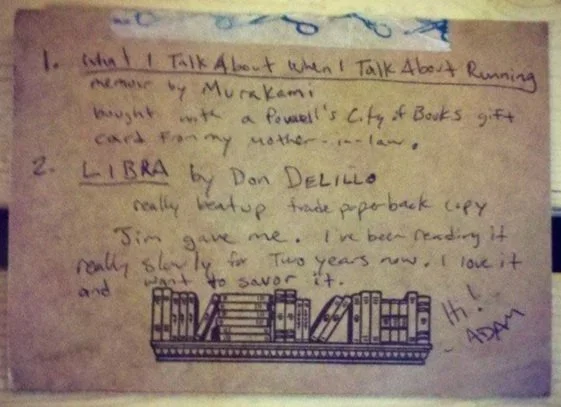 1. What I Talk About When I Talk About Running
memoir by Murakami
bought with a Powell's City of Books gift
card from my mother-in-law.
2. LIBRA by Don DELILLO
really beatup trade paperback copy
Jim gave me. I've been reading it
really slowly for Two years now. I love it
and want to savor it.
Hi!
- ADAM